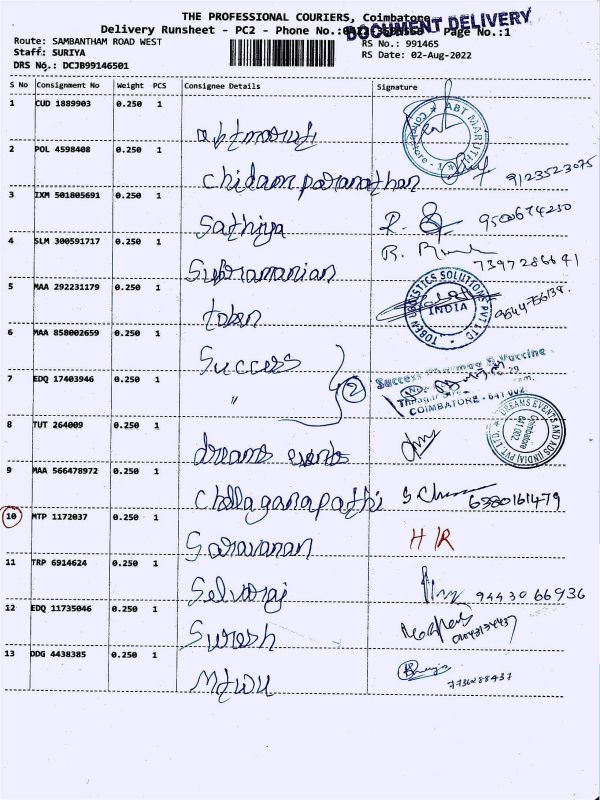 THE PROFESSIONAL COURIERS, Coimbatore
DOCUMENT DELIVERY
Delivery Runsheet - PC2 - Phone No.: Page No.:1
Route: SAMBANTHAM ROAD WEST
RS No.: 991465
Staff: SURIYA
RS Date: 02-Aug-2022
DRS No.: DCJB99146501
S No Consignment No Weight PCS Consignee Details Signature
1 CUD 1889903 0.250 1
ABT MARUTHI
2 POL 4598408 0.250 1
Chidamparanathan 9123523075
3 IXM 501805691 0.250 1
Sathiya R. 9500674250
4 SLM 300591717 0.250 1
Subramanian R. 7397286641
5 MAA 292231179 0.250 1
toben TOBEN LOGISTICS SOLUTIONS PVT LTD INDIA
6 MAA 858002659 0.250 1
Success
7 EDQ 17403946 0.250 1
" 2 Success Pharma & Vaccine
COIMBATORE - 641 002
8 TUT 264009 0.250 1
dreams events DREAMS EVENTS AND ADS (INDIA) PVT. LTD. Coimbatore 641 002
9 MAA 566478972 0.250 1
Chellaganapathi 6380161479
10 MTP 1172037 0.250 1
Saravanan H/R
11 TRP 6914624 0.250 1
Selvaraj 94430 66936
12 EDQ 11735046 0.250 1
Suresh
13 DDG 4438385 0.250 1